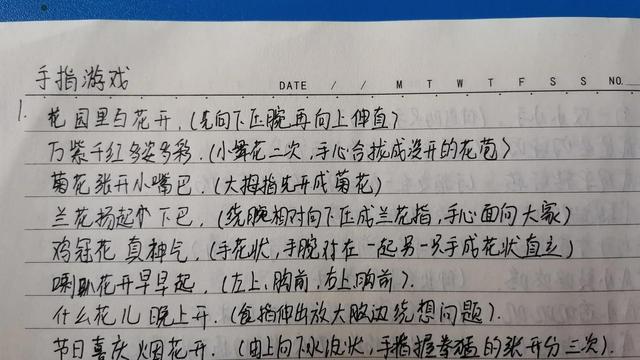 手指游戏
DATE / / M T W T F S S NO.
1.
花园里百花开,(先向下压腕再向上伸直)
万紫千红多姿多彩.(小舞花二次,手心合拢成没开的花苞)
菊花张开小嘴巴.(大拇指先开成菊花)
兰花扬起小下巴.(绕腕相对向下压成兰花指,手心面向大家)
鸡冠花真神气.(手花状,手腕对在一起另一只手成花状直立)
喇叭花开早早起.(左上,胸前,右上,胸前).
什么花儿晚上开.(食指伸出放大脑边绕想问题).
节日喜庆烟花开.(由上向下水波状,手指握拳 的张开分三次).